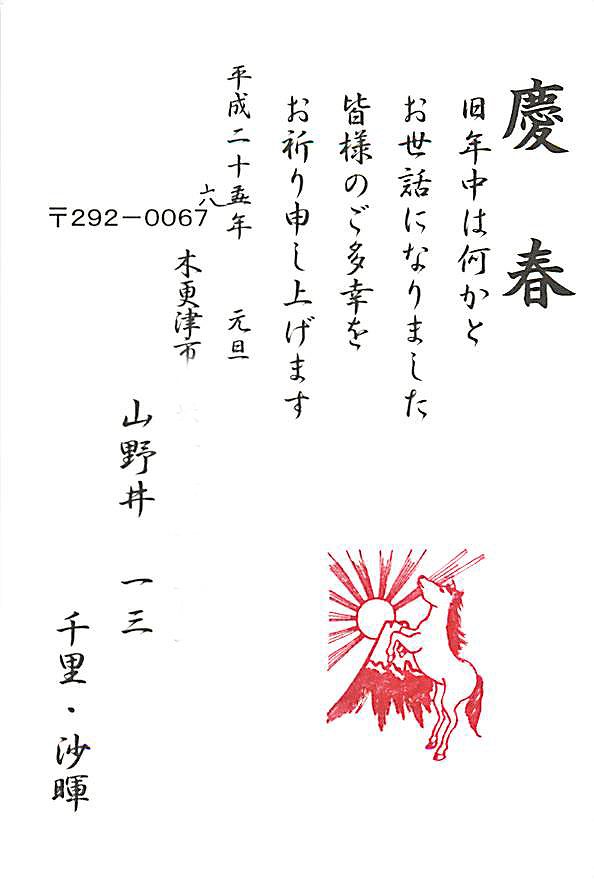 慶春
旧年中は何かと
お世話になりました
皆様のご多幸を
お祈り申し上げます
平成二十五年 元旦
六
〒292-0067
木更津市
山野井 一三
千里・沙暉